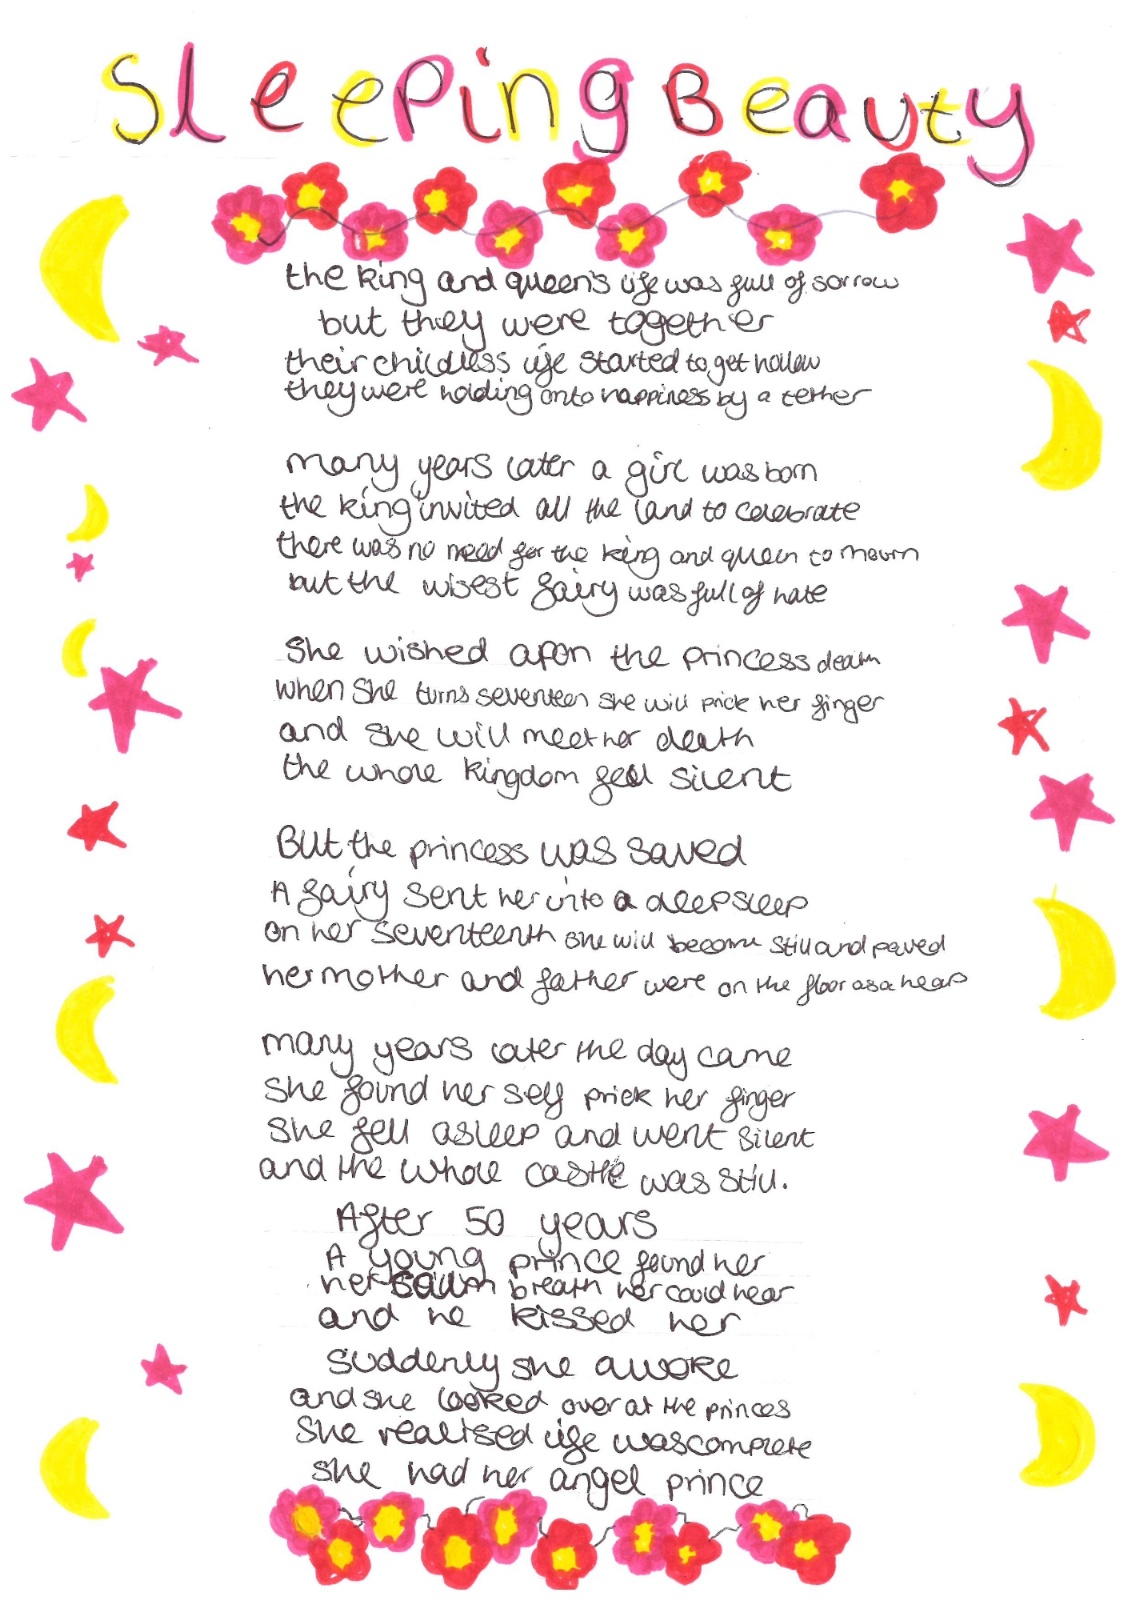 Sleeping Beauty
the king and queen's life was full of sorrow
but they were together
their childless life started to get hollow
they were holding onto happiness by a tether
many years later a girl was born
the king invited all the land to celebrate
there was no need for the king and queen to mourn
but the wisest fairy was full of hate
She wished apon the princess death
when she turns seventeen she will prick her finger
and she will meet her death
the whole kingdom fell silent
But the princess was saved
A fairy sent her into a deep sleep
on her seventeenth she will become still and paved
her mother and father were on the floor as a heap
many years later the day came
She found her self prick her finger
She fell asleep and went silent
and the whole castle was still.
After 50 years
A young prince found her
her breath her could hear
and he kissed her
suddenly she awoke
and she looked over at the princes
She realised life was complete
she had her angel prince